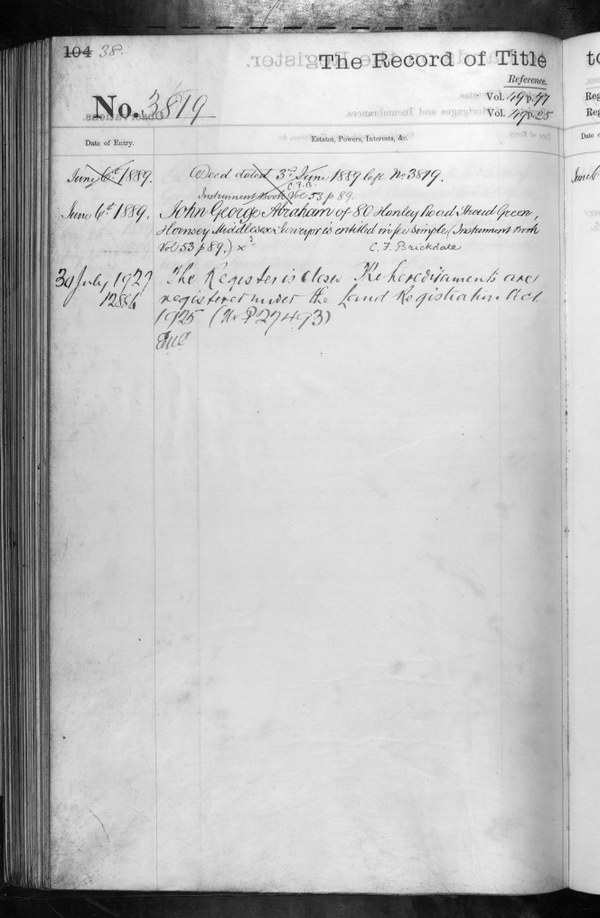 104 38.
The Record of Title
Reference.
No. 3819
Vol. 49 p. 47
Vol. 49 p. 25
Date of Entry.
Estates, Powers, Interests, &c.
June 6th 1889.
Deed dated 3rd June 1889 left No 3819.
C.F.B.
Instrument Book Vol 53 p 89.
June 6th 1889.
John George Abraham of 80 Hanley Road Stroud Green,
Hornsey Middlesex Surveyor is entitled in fee simple (Instrument Book
Vol 53 p 89.)
C. F. Brickdale
30 July 1927
The Register is closed. The hereditaments are
registered under the Land Registration Act
1925 (No P27493)